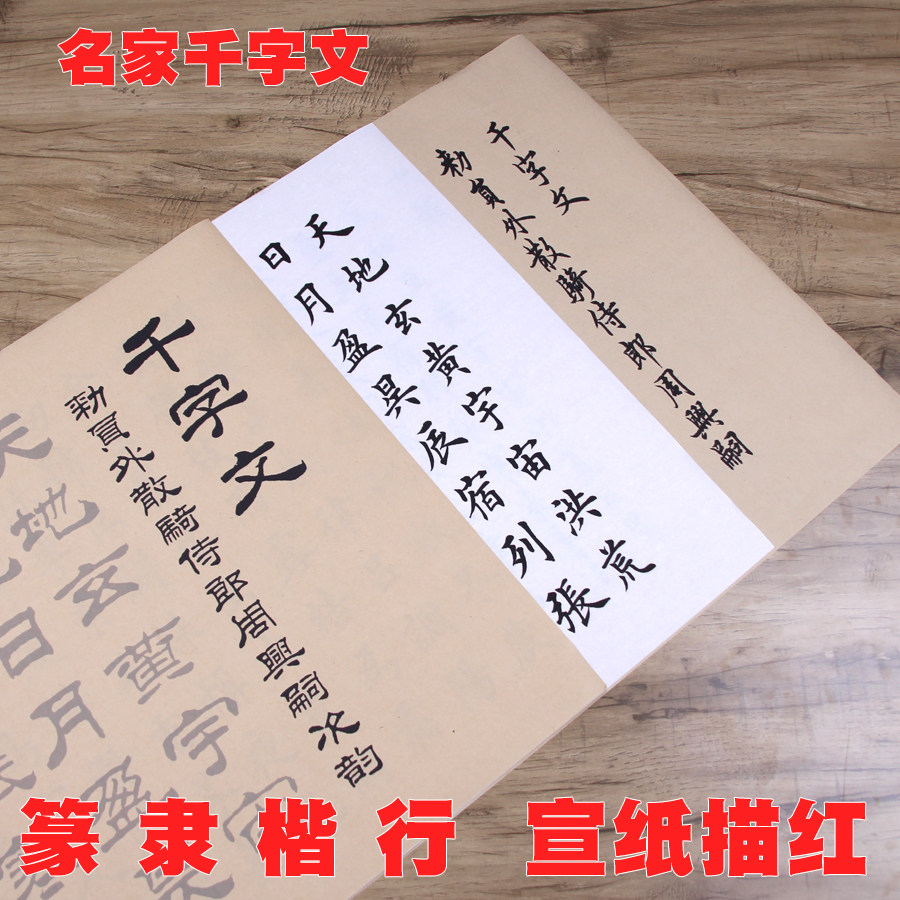 名家千字文
千字文
勅員外散騎侍郎周興嗣
天地玄黃宇宙洪荒
日月盈昃辰宿列張
千字文
勑員外散騎侍郎周興嗣次韵
天地玄黃宇
日月盈昃
篆隶楷行 宣纸描红